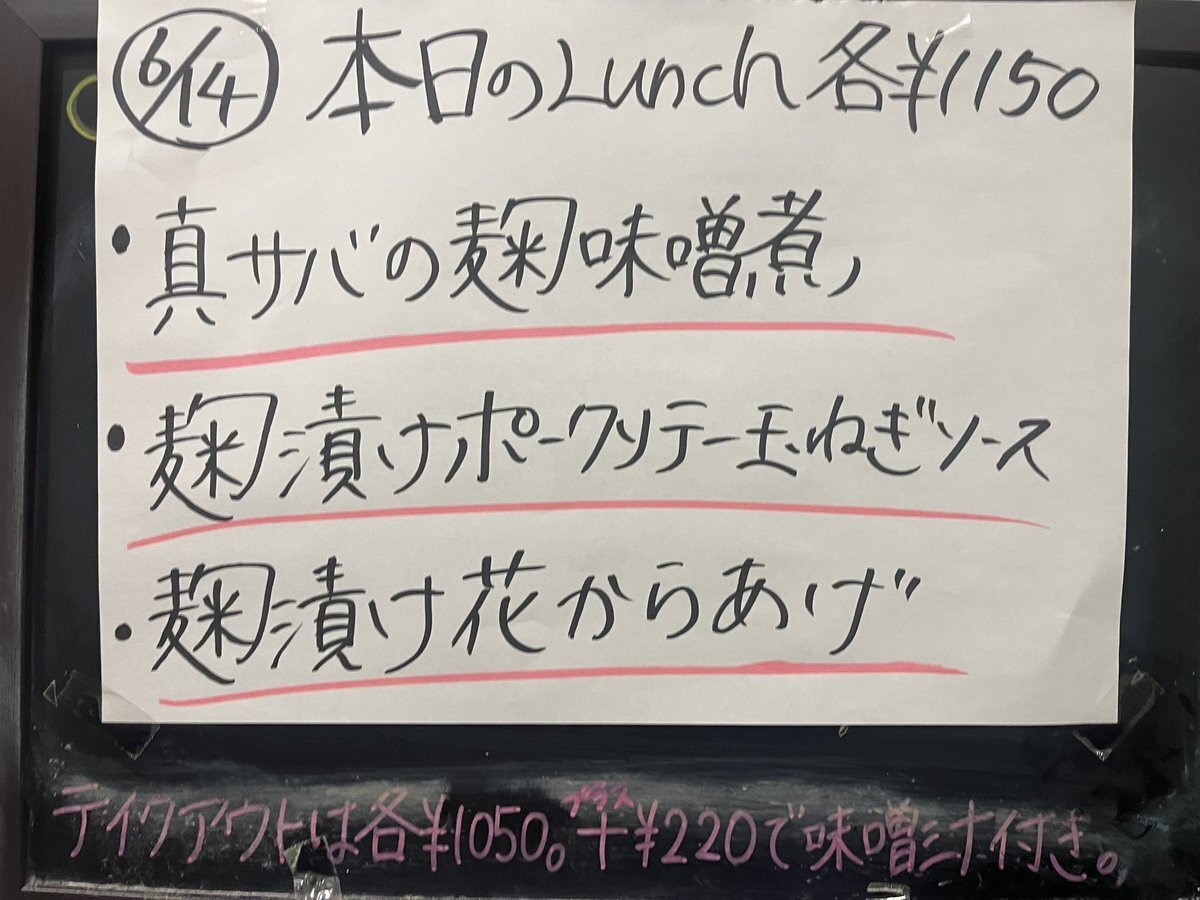 6/14 本日のLunch 各¥1150
・真サバの麹味噌煮
・麹漬けポークソテー玉ねぎソース
・麹漬け花からあげ
プラス
テイクアウトは各¥1050。+¥220で味噌汁付き。